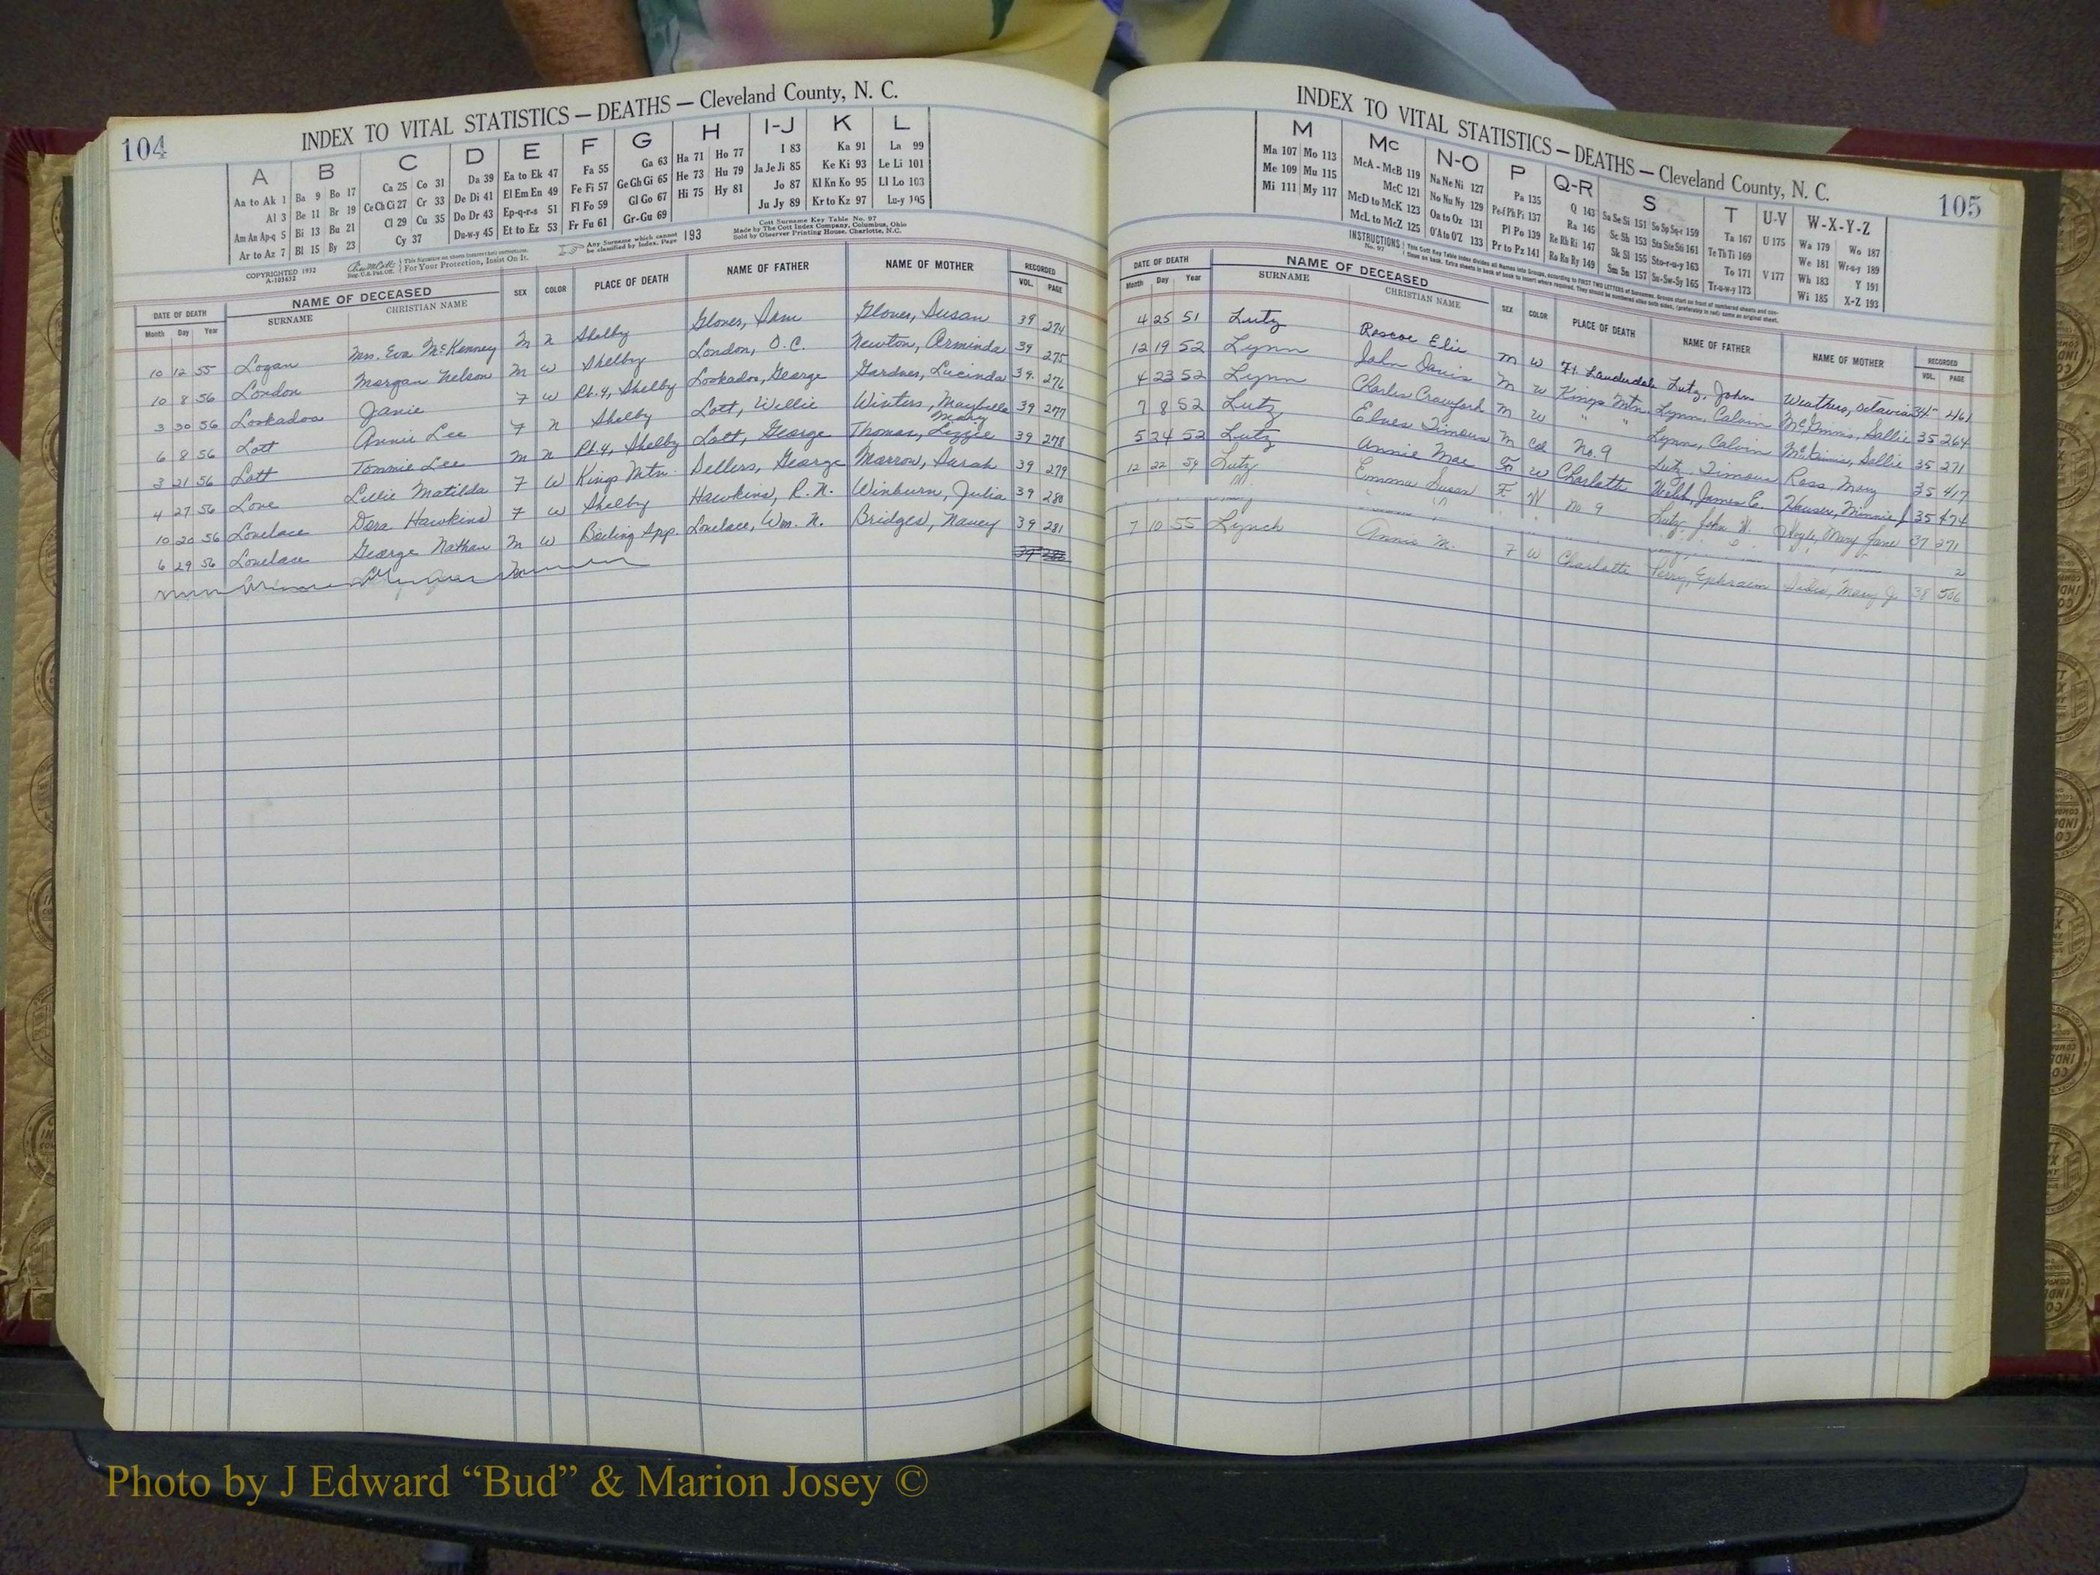 104
INDEX TO VITAL STATISTICS — DEATHS — Cleveland County, N. C.
A B C D E F G H I-J K L
Aa to Ak 1 Ba 9 Bo 17 Ca 25 Co 31 Da 39 Ea to Ek 47 Fa 55 Ga 63 Ha 71 Ho 77 I 83 Ka 91 La 99
Al 3 Be 11 Br 19 Ce Ch Ci 27 Cr 33 De Di 41 El Em En 49 Fe Fi 57 Ge Gh Gi 65 He 73 Hu 79 Ja Je Ji 85 Ke Ki 93 Le Li 101
Am An Ap-q 5 Bi 13 Bu 21 Cl 29 Cu 35 Do Dr 43 Ep-q-r-s 51 Fl Fo 59 Gl Go 67 Hi 75 Hy 81 Jo 87 Kl Kn Ko 95 Ll Lo 103
Ar to Az 7 Bl 15 By 23 Cy 37 Du-w-y 45 Et to Ez 53 Fr Fu 61 Gr-Gu 69 Ju Jy 89 Kr to Kz 97 Lu-y 105
COPYRIGHTED 1932
A-103632
For Your Protection, Insist On It.
Any Surname which cannot be classified by Index, Page 193
Cott Surname Key Table No. 97
Made by The Cott Index Company, Columbus, Ohio
Sold by Observer Printing House, Charlotte, N.C.
DATE OF DEATH NAME OF DECEASED SEX COLOR PLACE OF DEATH NAME OF FATHER NAME OF MOTHER RECORDED
Month Day Year SURNAME CHRISTIAN NAME VOL. PAGE
10 12 55 Logan Mrs. Eva McKenney M n Shelby Glover, Sam Glover, Susan 39 274
10 8 56 London Morgan Nelson M w Shelby London, O.C. Newton, Arminda 39 275
3 30 56 Lookadoo Janie F w Rt. 4, Shelby Lookadoo, George Gardner, Lucinda 39. 276
6 8 56 Lott Annie Lee F n Shelby Lott, Willie Winters, Maybelle 39 277
3 21 56 Lott Tommie Lee M n Rt. 4, Shelby Lott, George Thomas, Lizzie Mary 39 278
4 27 56 Love Lillie Matilda F W Kings Mtn. Sellers, George Morrow, Sarah 39 279
10 20 56 Lovelace Dora Hawkins F w Shelby Hawkins, R.N. Winburn, Julia 39 280
6 29 56 Lovelace George Nathan M W Boiling Spp. Lovelace, Wm. N. Bridges, Nancy 39 281
INDEX TO VITAL STATISTICS — DEATHS — Cleveland County, N. C.
105
M Mc N-O P Q-R S T U-V W-X-Y-Z
Ma 107 Mo 113 McA - McB 119 Na Ne Ni 127 Pa 135 Q 143 Sa Se Si 151 So Sp Sq-r 159 Ta 167 U 175 Wa 179 Wo 187
Me 109 Mu 115 McC 121 No Nu Ny 129 Pe-f Ph Pi 137 Ra 145 Sc Sh 153 Sta Ste Sti 161 Te Th Ti 169 We 181 Wr-u-y 189
Mi 111 My 117 McD to McK 123 Oa to Oz 131 Pl Po 139 Re Rh Ri 147 Sk Sl 155 Sto-r-u-y 163 To 171 V 177 Wh 183 Y 191
McL to McZ 125 O'A to O'Z 133 Pr to Pz 141 Ro Ru Ry 149 Sm Sn 157 Su-Sw-Sy 165 Tr-u-w-y 173 Wi 185 X-Z 193
INSTRUCTIONS
No. 97
DATE OF DEATH NAME OF DECEASED SEX COLOR PLACE OF DEATH NAME OF FATHER NAME OF MOTHER RECORDED
Month Day Year SURNAME CHRISTIAN NAME VOL. PAGE
4 25 51 Lutz Roscoe Elie M W Ft. Lauderdale Lutz, John Weathers, Octavia 34 461
12 19 52 Lynn Joh Davis M w Kings Mtn Lynn, Calvin McGinnis, Sallie 35 264
4 23 52 Lynn Charles Crawford M w " " Lynn, Calvin McGinnis, Sallie 35 271
7 8 52 Lutz Timous M col No. 9 Lutz, Timous Ross, Mary 35 417
5 24 52 Lutz Annie Mae F w Charlotte Webb, James E. Hauser, Minnie J 35 474
12 22 54 Lutz Emma Susan F W No 9 Lutz, John W. Hoyle, Mary Jane 37 271
7 10 55 Lynch Annie M. F W Charlotte Perry, Ephraim Mary J. 38 506
Photo by J Edward “Bud” & Marion Josey ©